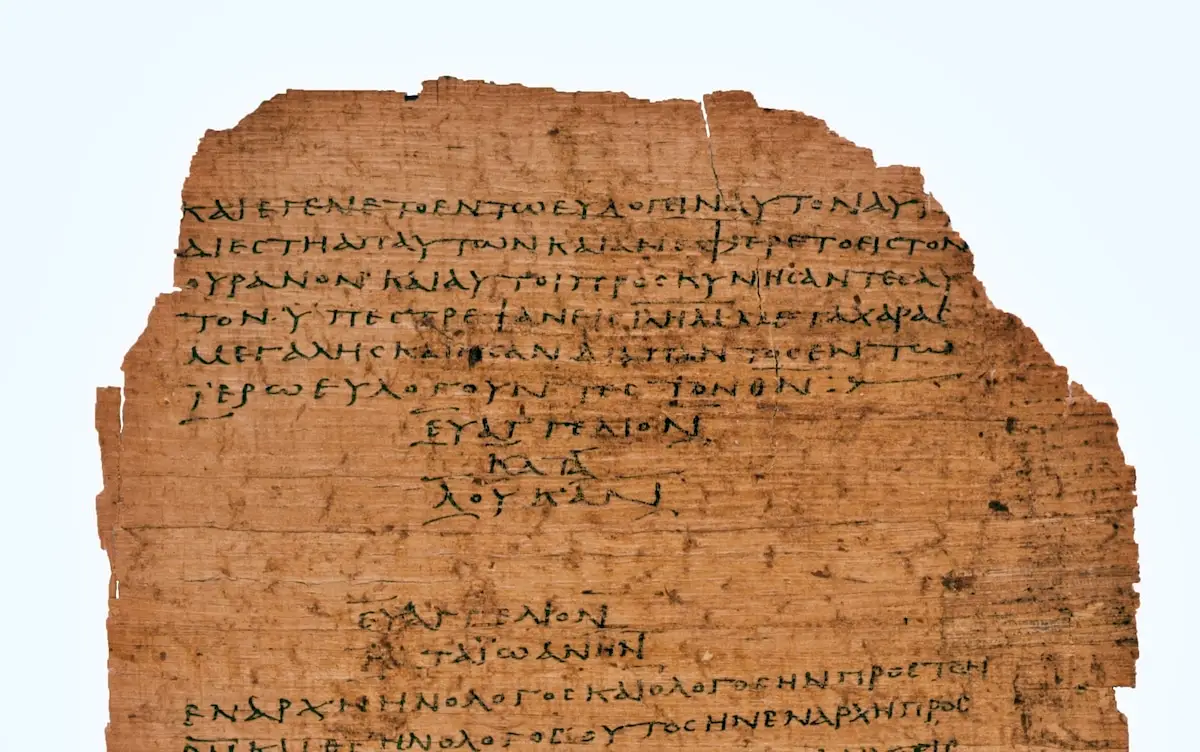 ΚΑΙΕΓΕΝΕΤΟΕΝΤΩΕΥΛΟΓΕΙΝΑΥΤΟΝΑΥΤ
ΔΙΕϹΤΗΑΠΑΥΤΩΝΚΑΙΑΝΕΦΕΡΕΤΟΕΙϹΤΟΝ
ΟΥΡΑΝΟΝ·ΚΑΙΑΥΤΟΙΠΡΟϹΚΥΝΗϹΑΝΤΕϹΑΥ
ΤΟΝ·ΥΠΕϹΤΡΕΨΑΝΕΙϹΙΛΗΜΜΕΤΑΧΑΡΑϹ
ΜΕΓΑΛΗϹΚΑΙΗϹΑΝΔΙΑΠΑΝΤΟϹΕΝΤΩ
ΪΕΡΩΕΥΛΟΓΟΥΝΤΕϹΤΟΝΘΝ
ΕΥΑΓΓΕΛΙΟΝ
ΚΑΤΑ
ΛΟΥΚΑΝ
ΕΥΑΓΓΕΛΙΟΝ
ΚΑΤΑΪΩΑΝΗΝ
ΕΝΑΡΧΗΗΝΟΛΟΓΟϹΚΑΙΟΛΟΓΟϹΗΝΠΡΟϹΤΟΝ
ΗΝΟΛΟΓΟϹΟΥΤΟϹΗΝΕΝΑΡΧΗΠΡΟϹ